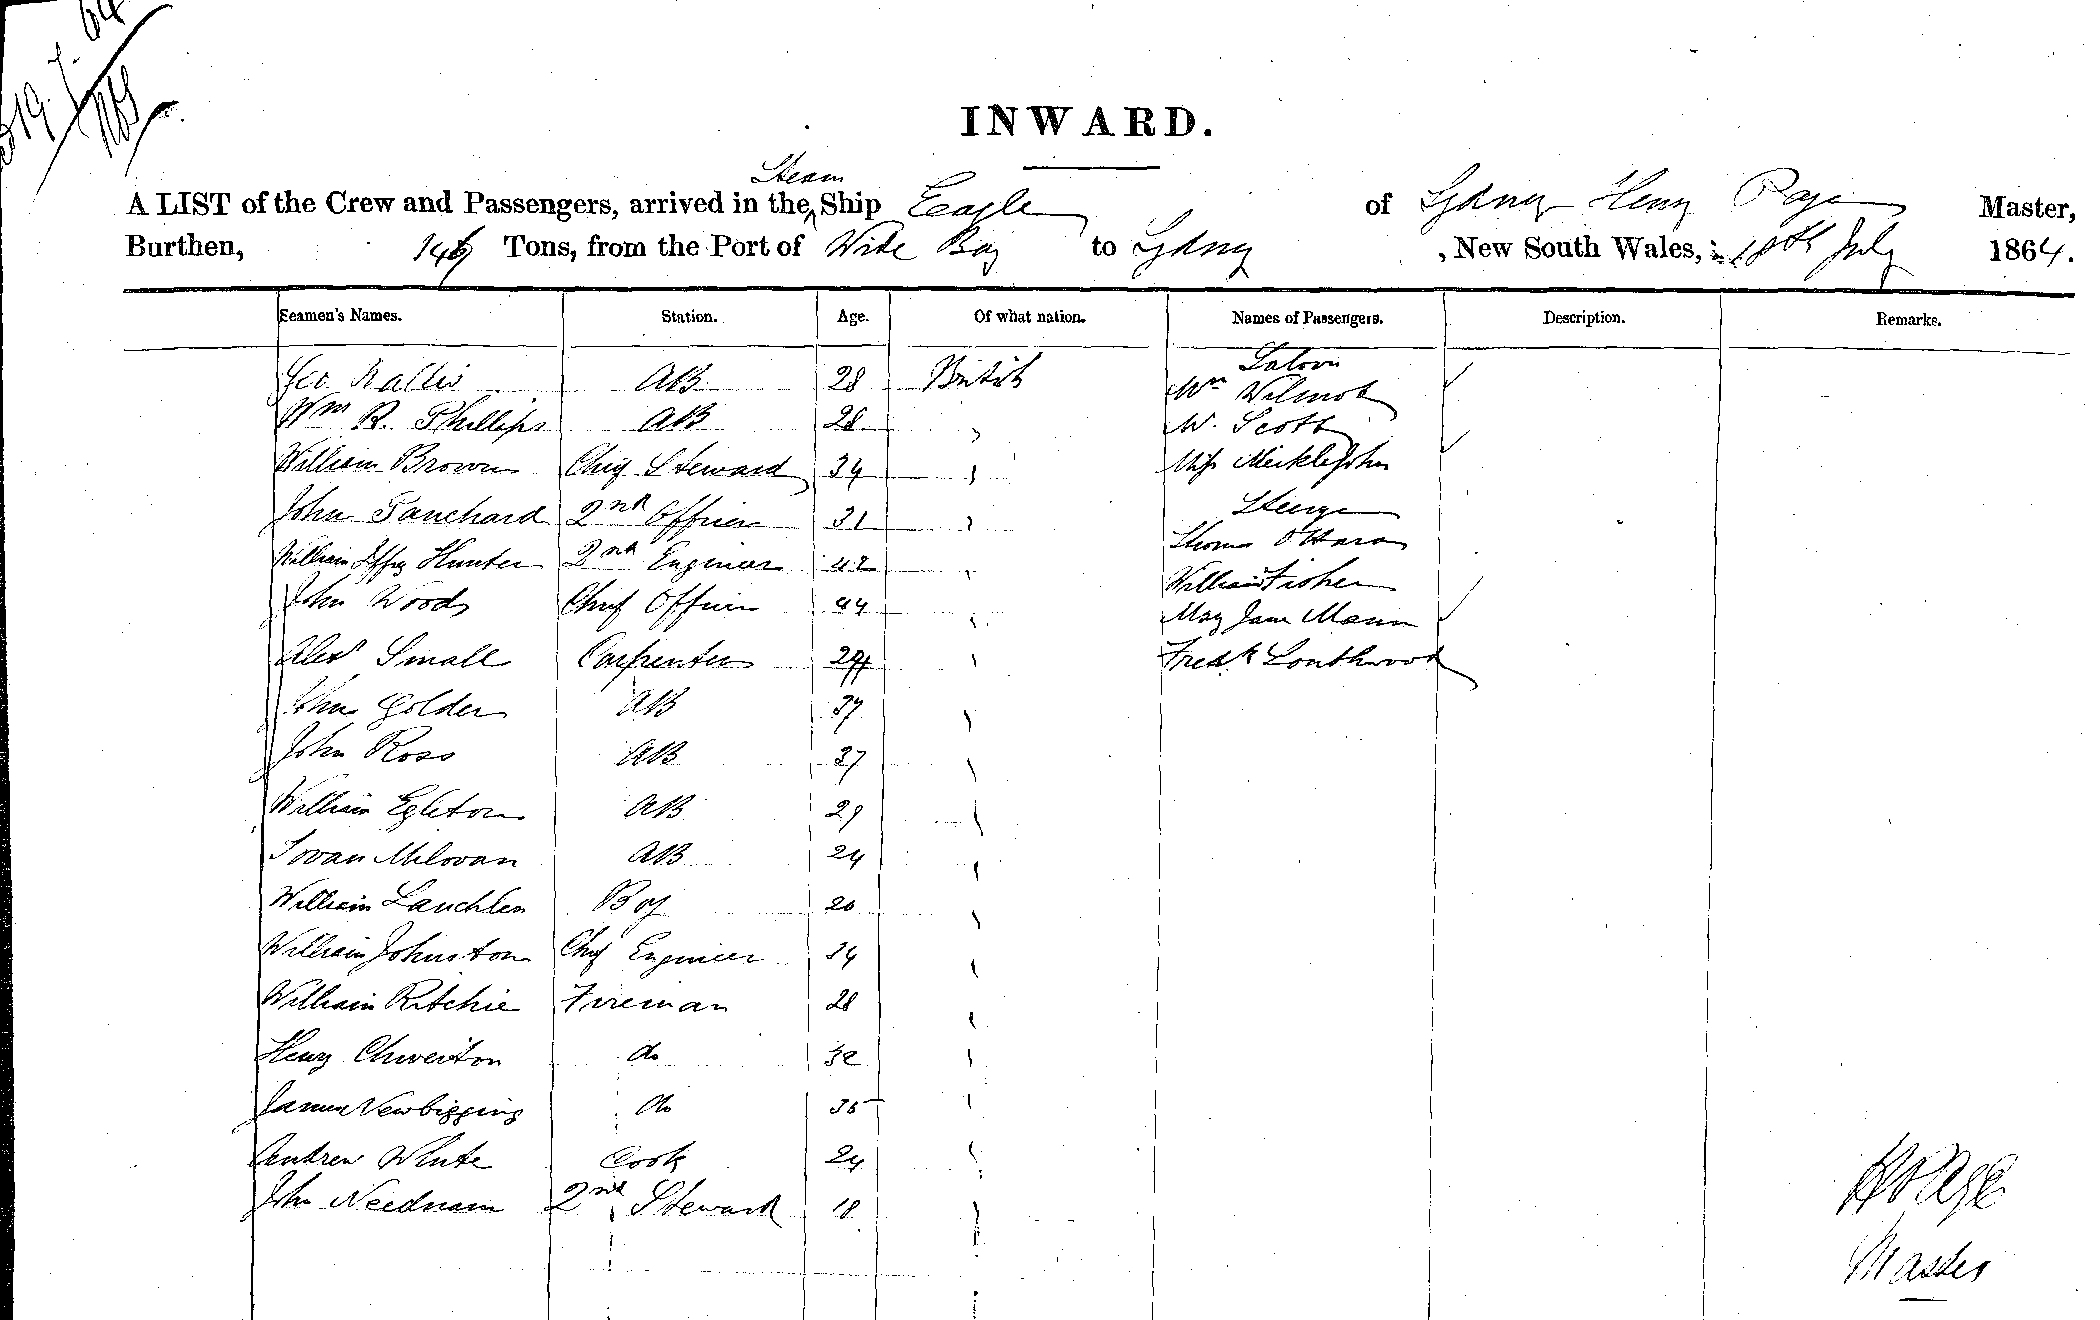 INWARD.
Steam
A LIST of the Crew and Passengers, arrived in the Ship Eagle of Sydney Henry Page Master,
Burthen, 146 Tons, from the Port of Wide Bay to Sydney , New South Wales, 18th July 1864.
Seamen's Names. Station. Age. Of what nation. Names of Passengers. Description. Remarks.
Saloon
Geo AB 28 British Wm Wilmot
Wm R. Phillips AB 28 " W. Scott
William Brown Chief Steward 34 " Miss Meiklejohn
John Tanchard 2nd Officer 31 " Steerge
William Jeffrey Hunter 2nd Engineer 42 " Thomas O'Hara
John Woods Chief Officer 44 " William Fisher
Mary Jane Mann
Alexr Small Carpenter " Fredk Southwood
John Golder AB 37 "
John Ross AB 27 "
William Egleton AB 29 "
Iovan Milovan AB 24 "
William Lauchlen Boy 20 "
William Johnston Chief Engineer 34 "
William Ritchie Fireman 28 "
Henry Chverton do 32 "
James Newbigging do 35 "
Andrew White Cook 24 "
John Needham 2nd Steward 18 "
H Page
Master